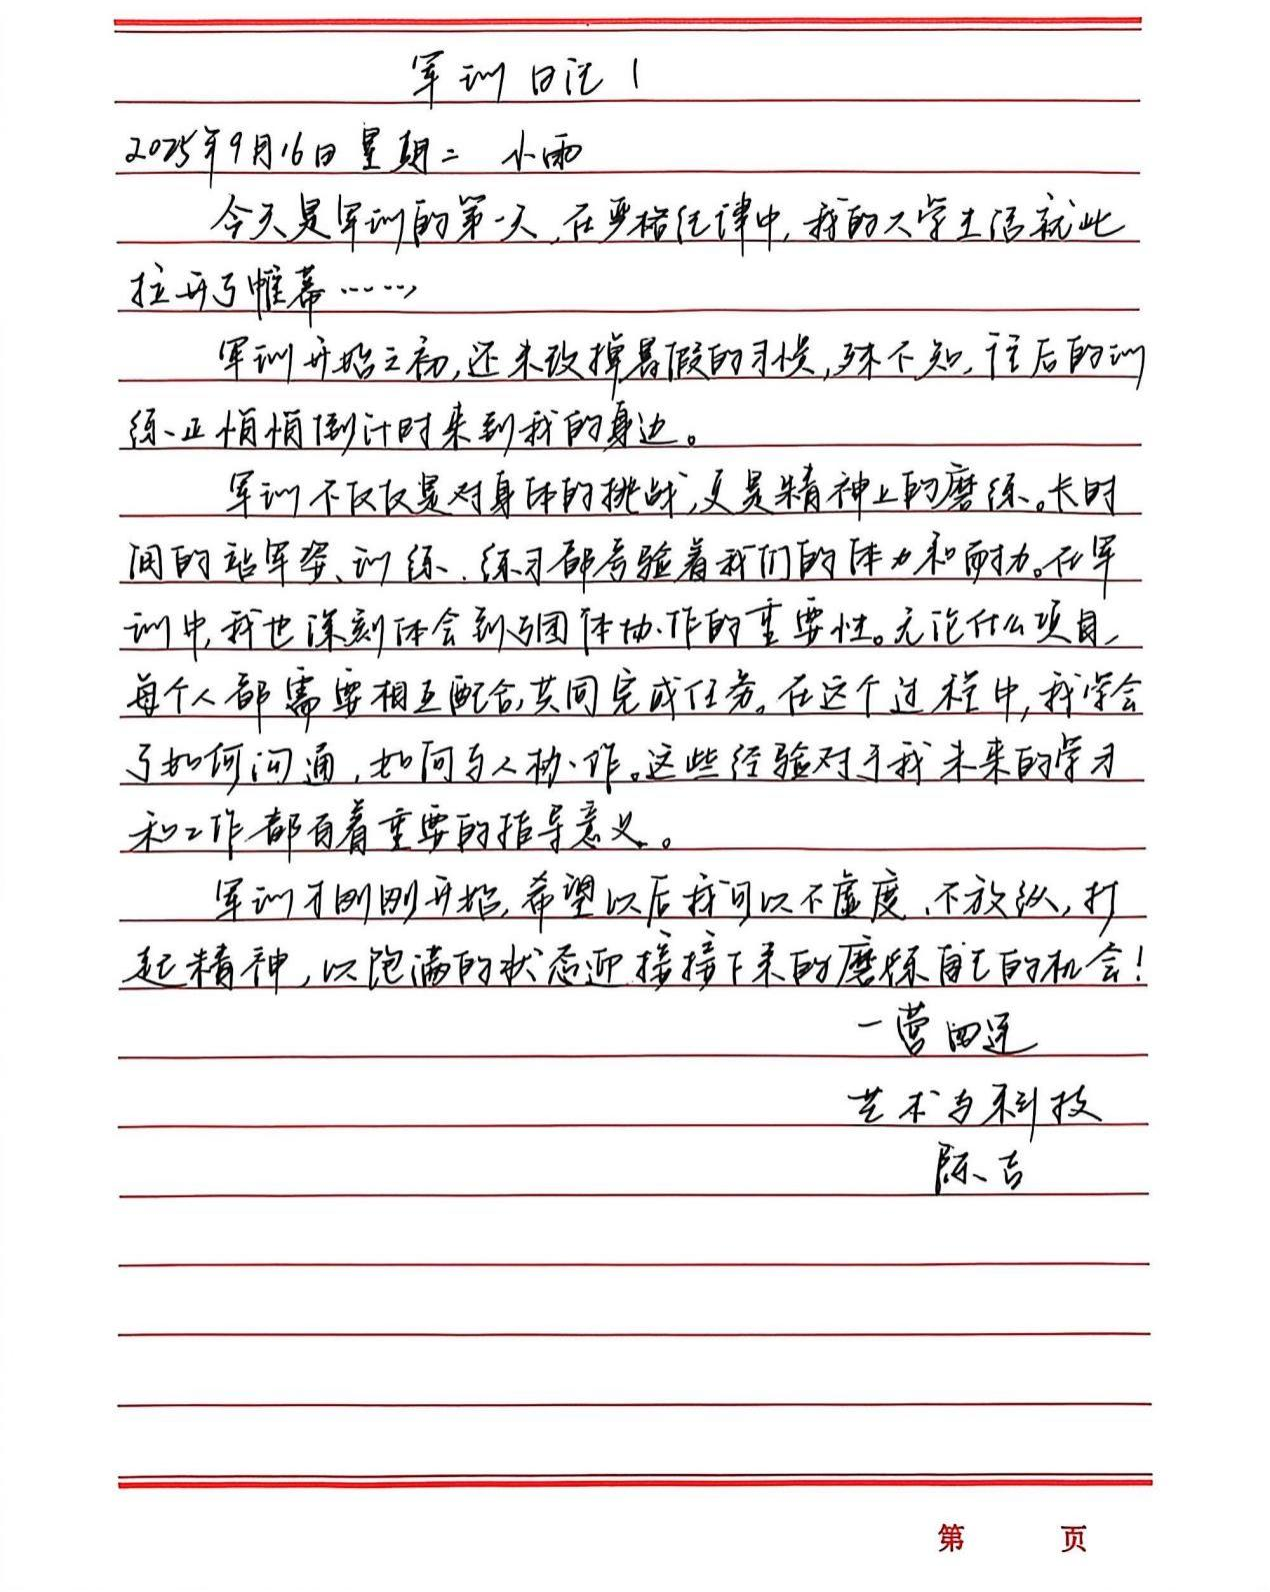 军训日记1
2025年9月16日 星期二 小雨
今天是军训的第一天,在严格纪律中,我的大学生活就此
拉开了帷幕……,
军训开始之初,还未改掉暑假的习惯,殊不知,往后的训
练正悄悄倒计时来到我的身边。
军训不仅仅是对身体的挑战,更是精神上的磨练。长时
间的站军姿、训练、练习都考验着我们的体力和耐力。在军
训中,我也深刻体会到了团体协作的重要性。无论什么项目,
每个人都需要相互配合,共同完成任务。在这个过程中,我学会
了如何沟通,如何与人协作。这些经验对于我未来的学习
和工作都有着重要的指导意义。
军训才刚刚开始,希望以后我可以不虚度、不放纵,打
起精神,以饱满的状态迎接接下来的磨练自己的机会!
一营四连
艺术与科技
陈吉
第 页